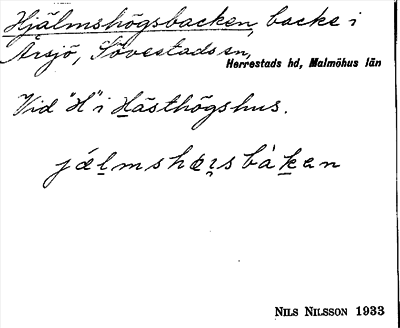 Hjälmshögsbacken, backe i
Årsjö, Sövestads sn,
Herrestads hd, Malmöhus län
Vid "H" i Hästhögshus.
jálmshøısbàkan
NILS NILSSON 1933